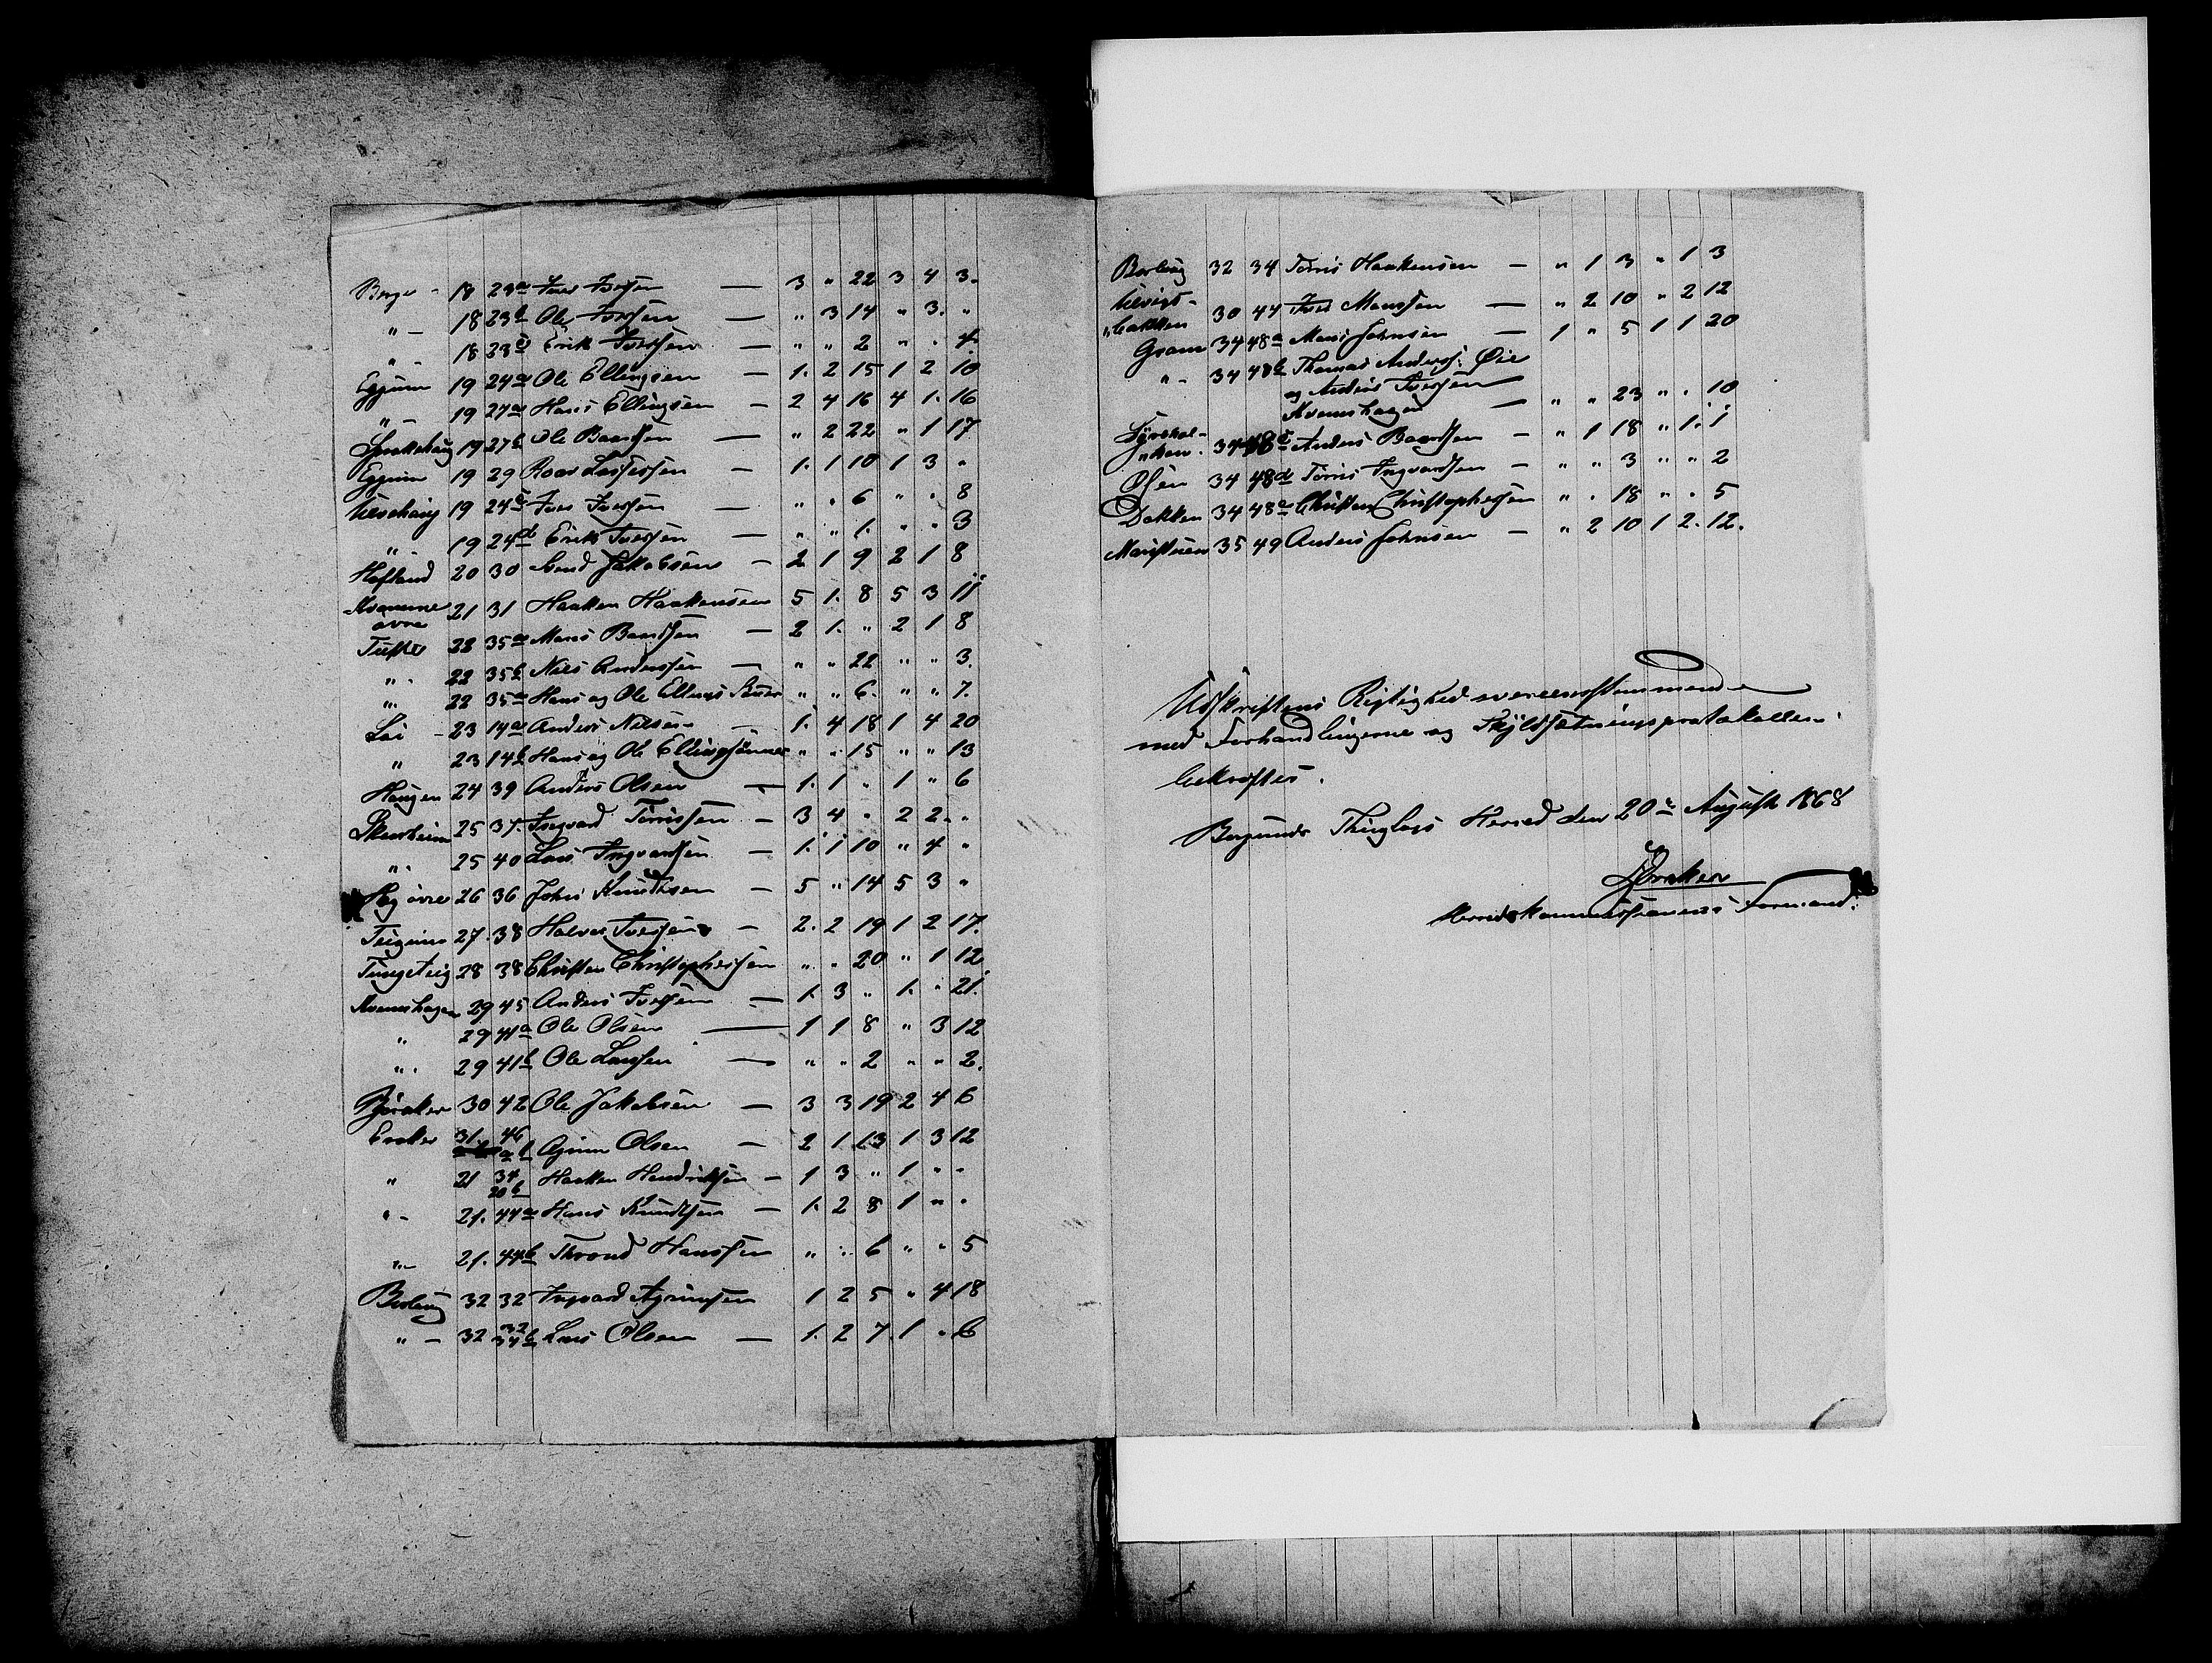 Berge - 18 23a Iver Iversen — 3 " 22 3 4 3.
" - 18 23b Ole Iversen — " 3 14 " 3. "
" - 18 23c Erik Iversen — " " 2 " . 4
Eggum 19 24a Ole Ellingsen — 1. 2 15 1 2 10
" - 19 27a Hans Ellingsen — 2 4 16 4 1. 16
19 27b Ole Baardsen — " 2 22 " 1 17
Eggum 19 29 Roar Lassesen — 1. 1 10 1 3 "
19 24c Iver Iversen — " . 6 " . 8
" - 19 24d Erik Iversen — " " 1. " " 3
Hofland 20 30 Svend Jakobsen — 2 1 9 2 1 8
Kvamme øvre 21 31 Haaken Haakensen 5 1. 8 5 3 11
Tufte 22 35a Mons Baardsen — 2 1. " 2 1 8
" . 22 35b Nils Andersen — " " 22 " " 3.
" . 22 35a Hans og Ole Ellings Sønner " " 6. " " 7.
Loi - 23 14a Anders Nilsen — 1. 4 18 1 4 20
" 23 14b Hans og Ole Ellingsønner " " 15 " " 13
Haugen 24 39 Anders Olsen — 1. 1 . 1 " 6
Skaarheim 25 37. Ingvard Tørrissen — 3 4 . 2 2. .
" . 25 40 Lars Ingvardsen — 1. 1 10 " 4 "
Steg øvre 26 36 Johs Knudtsen — 5 " 14 5 3 "
27. 38 Halvor Iversen — 2. 2 19 1 2 17.
28 38 Christen Christophersen " . 20 " 1 12
Kvamshagen 29 45 Anders Iversen — 1. 3 " 1. " 21.
" 29 41a Ole Olsen — 1 1 8 " 3 12
" . 29 41b Ole Larsen — " " 2 " " 2.
Bjøraker 30 42 Ole Jakobsen — 3 3 19 2 4 6
Eraker 31. 46 a b Agrim Olsen — 2 1. 13 1 3 12
" 21 34 20b Haaken Hendriksen — 1 3 " 1 " "
" - 21. 44a Hans Knudtsen — 1. 2 8 1 " .
" - 21. 44b Thrond Hanssen " " 6 " " 5
Borlaug 32 32 Ingvard Agrimsen 1 2 5 " 4 18
" - 32 32 34b Lars Olsen — 1. 2 7 1 " 6
Borlaug 32 34 Tørris Haakensen — " 1 3 " 1 3
"bakken 30 44 Iver Monssen — " 2 10 " 2 12
Gram 34 48a Mons Johnsen — 1 " 5 1 1 20
" - 34 48b Thomas Anderss: Øie
og Anders Iversen
Kvamshagen — " " 23 " . 10
34 48c Anders Baardsen — " 1 18 " 1. 1
Øien 34 48d Tørris Ingvardsen — " " 3 " " 2
Dokken 34 48e Christen Christophersen " . 18 " . 5
Maristuen 35 49 Anders Johnsen — " 2 10 1 2. 12.
Udskriftens Rigtighed overeensstemmende
med Forhandlingerne og Skyldsætningsprotokollen
bekræftes.
Borgunds Thinglags Herred den 20de August 1868
Herredskommissionens Formand.